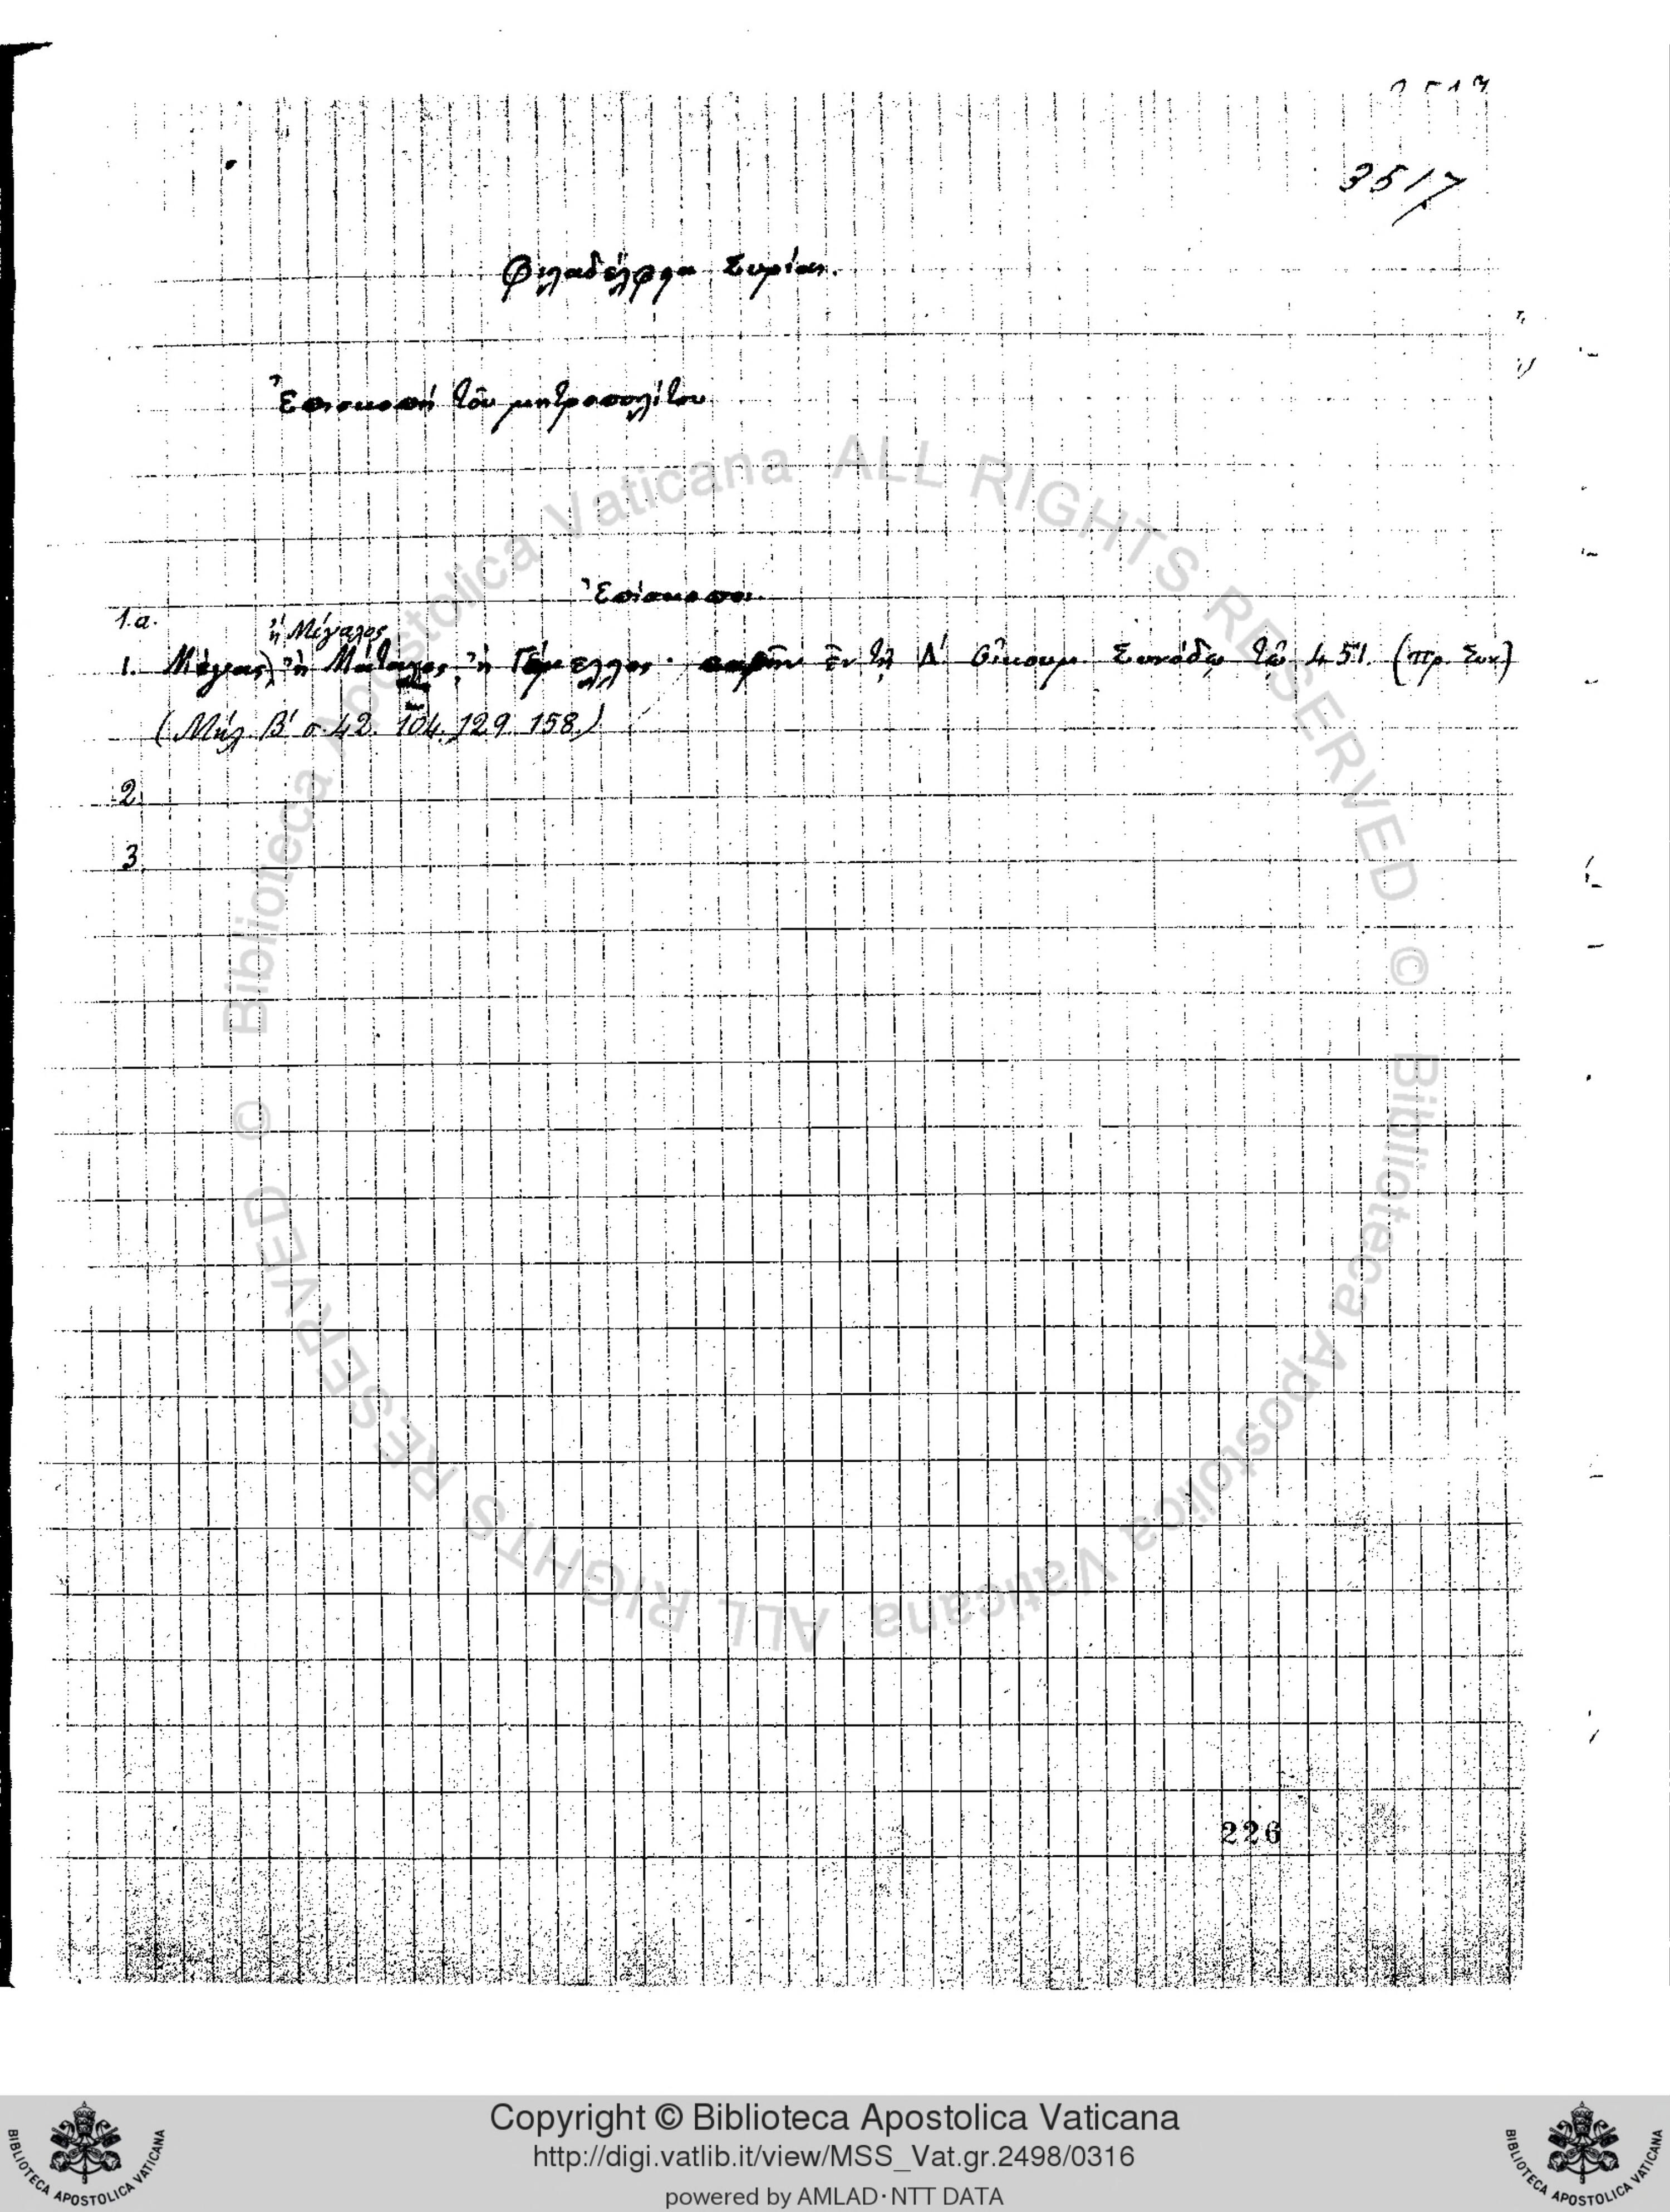 3517
Φιλαδέλφια Συρίας.
Ἐπισκοπὴ τοῦ μητροπολίτου
Ἐπίσκοποι.
1.α.
ἢ Μέγαλος
1. Μέγας) ἢ Μάταλος, ἢ Γέμελλος· παρῆν ἐν τῇ Δ΄ Οἰκουμ. Συνόδῳ τῷ 451. (πρ. Συν)
(Μήλ. Β΄ σ. 42. 104. 129. 158.)
2.
3.
226
© Biblioteca Apostolica Vaticana ALL RIGHTS RESERVED
© Biblioteca Apostolica Vaticana ALL RIGHTS RESERVED
Copyright © Biblioteca Apostolica Vaticana
http://digi.vatlib.it/view/MSS_Vat.gr.2498/0316
powered by AMLAD·NTT DATA
BIBLIOTECA APOSTOLICA VATICANA
BIBLIOTECA APOSTOLICA VATICANA